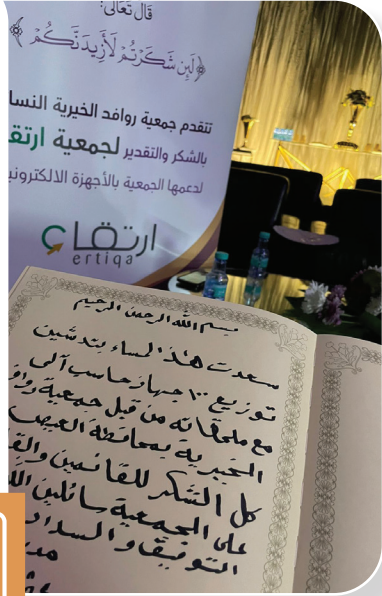 قَالَ تَعَالَى:
﴿لَئِن شَكَرْتُمْ لَأَزِيدَنَّكُمْ﴾
تتقدم جمعية روافد الخيرية النسا
بالشكر والتقدير لجمعية ارتقـ
لدعمها الجمعية بالأجهزة الالكتروني
ارتقاء
ertiqa
بسم الله الرحمن الرحيم
سعدت هذا المساء بتدشين
توزيع ١٠٠ جهاز حاسب آلي
مع ملحقاته من قبل جمعية
الخيرية بمحافظة العيص
كل الشكر للقائمين
على الجمعية سائلين الله
التوفيق والسداد